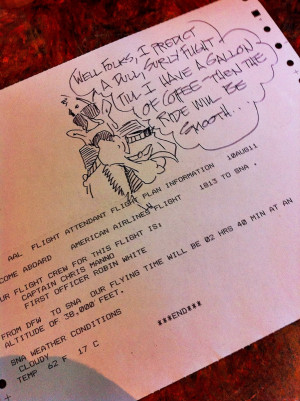 WELL FOLKS, I PREDICT
A DULL, SURLY FLIGHT
TILL I HAVE A GALLON
OF COFFEE - THEN THE
RIDE WILL BE
SMOOTH...
AAL FLIGHT ATTENDANT FLIGHT PLAN INFORMATION 10AUG11
COME ABOARD AMERICAN AIRLINES FLIGHT 1813 TO SNA .
UR FLIGHT CREW FOR THIS FLIGHT IS:
CAPTAIN CHRIS MANNO
FIRST OFFICER ROBIN WHITE
FROM DFW TO SNA OUR FLYING TIME WILL BE 02 HRS 40 MIN AT AN
ALTITUDE OF 38,000 FEET.
SNA WEATHER CONDITIONS
CLOUDY
TEMP 62 F 17 C
***END***